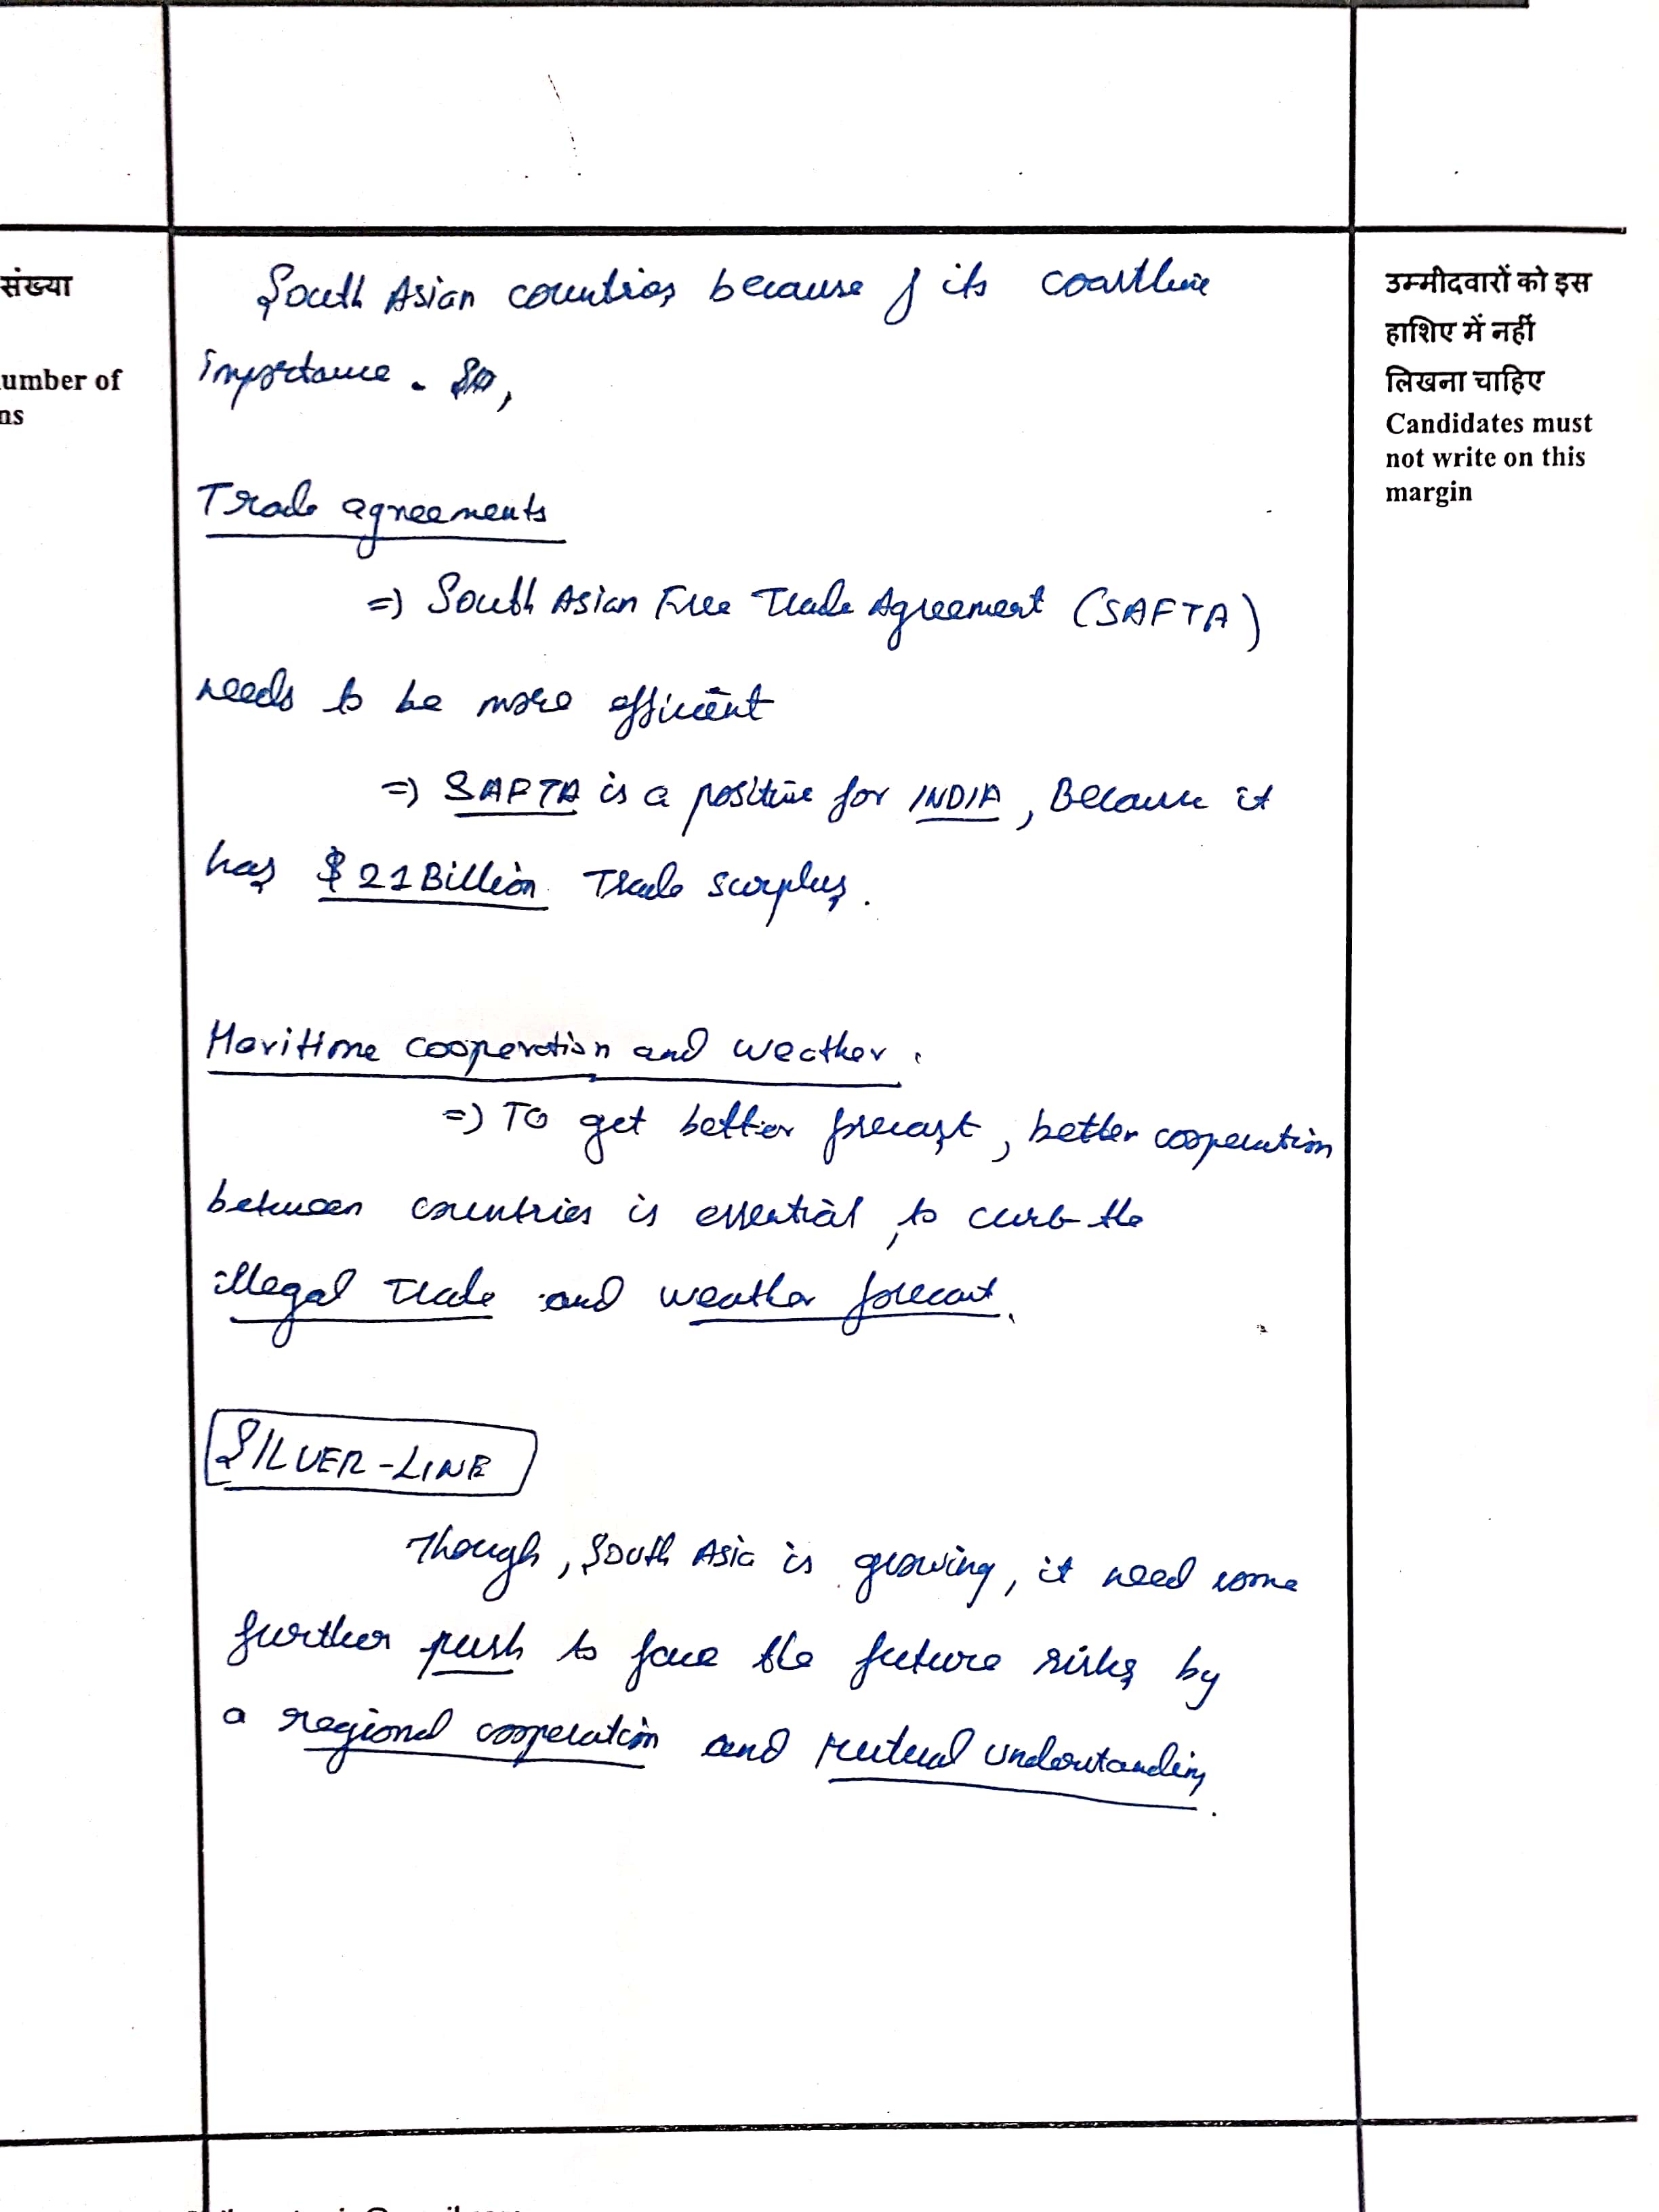 संख्या
umber of
ns
South Asian countries because of its coastline
importance. So,
Trade agreements
=) South Asian Free Trade Agreement (SAFTA)
needs to be more efficient
=) SAFTA is a positive for INDIA, Because it
has $21 Billion Trade surplus.
Maritime cooperation and weather.
=) To get better forecast, better cooperation
between countries is essential, to curb the
illegal Trade and weather forecast.
SILVER-LINE
Though, South Asia is growing, it need some
further push to face the future risks by
a regional cooperation and Mutual understanding.
उम्मीदवारों को इस
हाशिए में नहीं
लिखना चाहिए
Candidates must
not write on this
margin